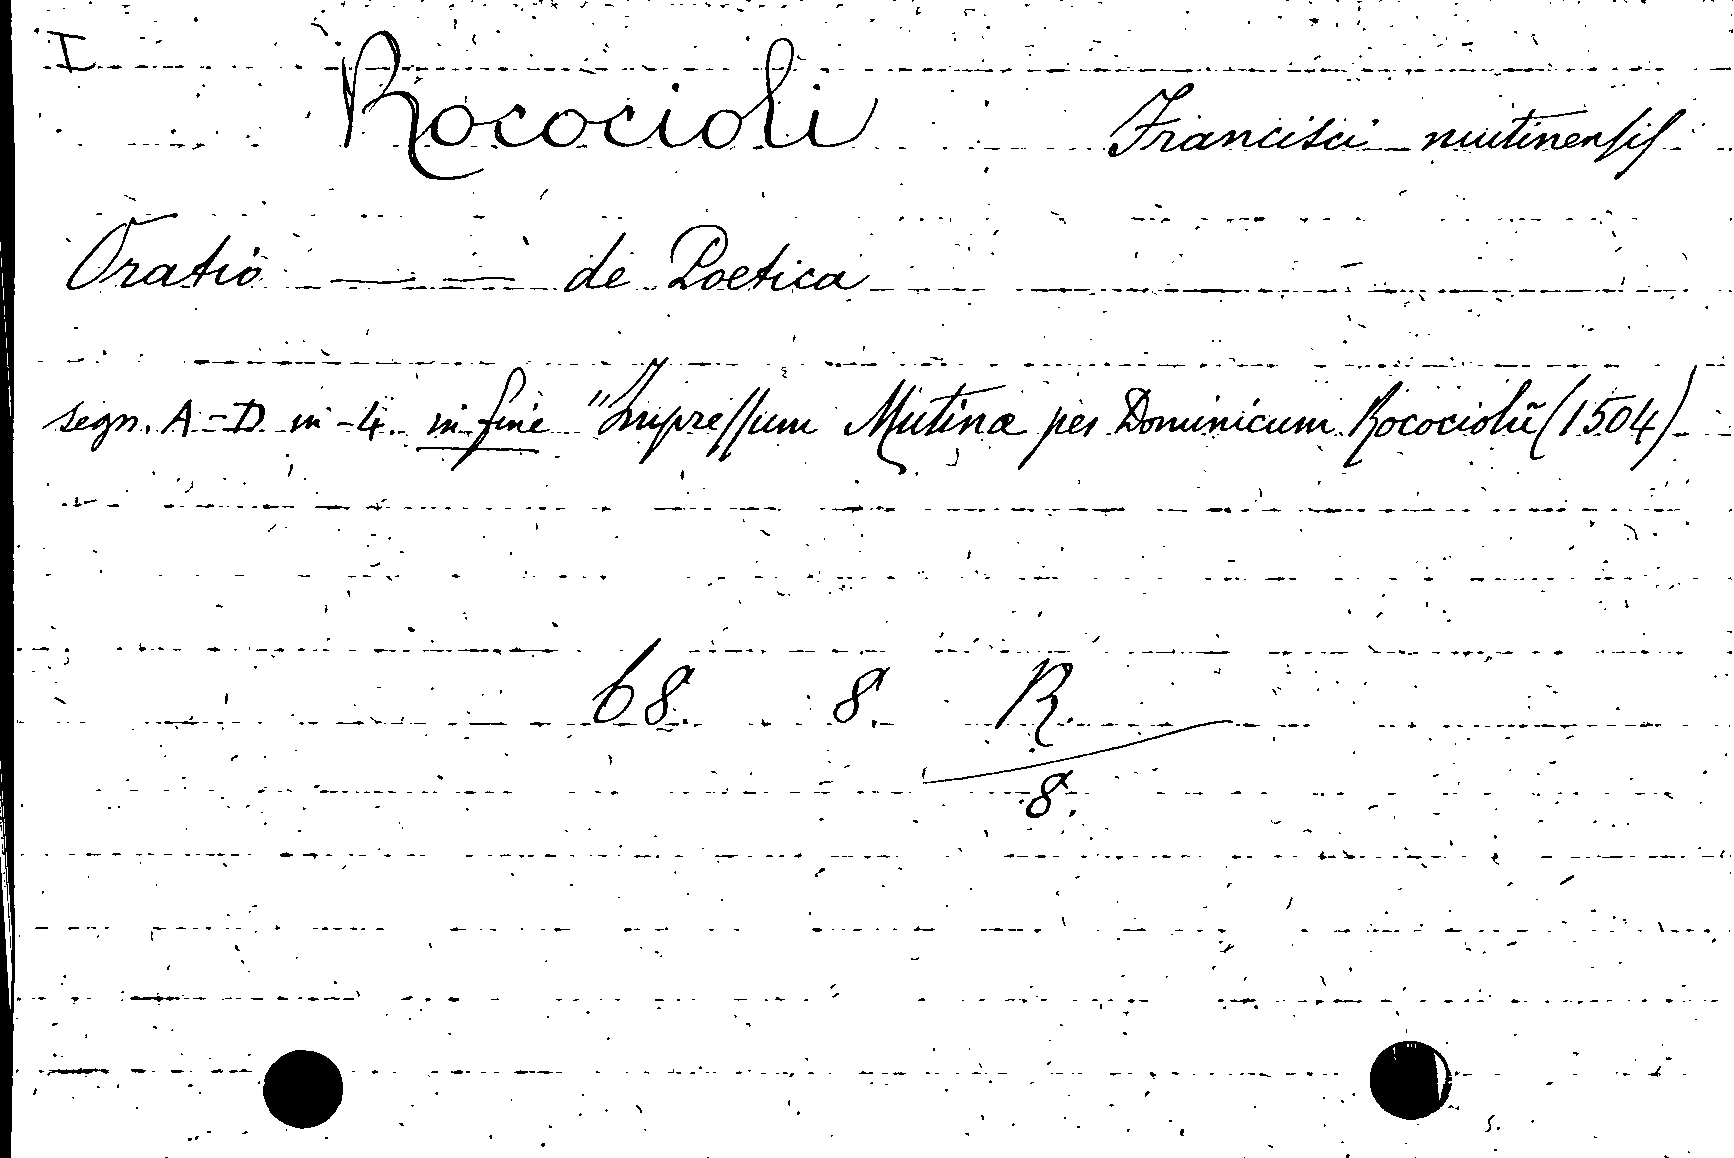 I
Rococioli Francisci mutinensis
Oratio — — de Poetica
segn. A-D in-4. in fine "Impressum Mutinæ per Dominicum Rocociolū (1504)
68. 8. R.
8.